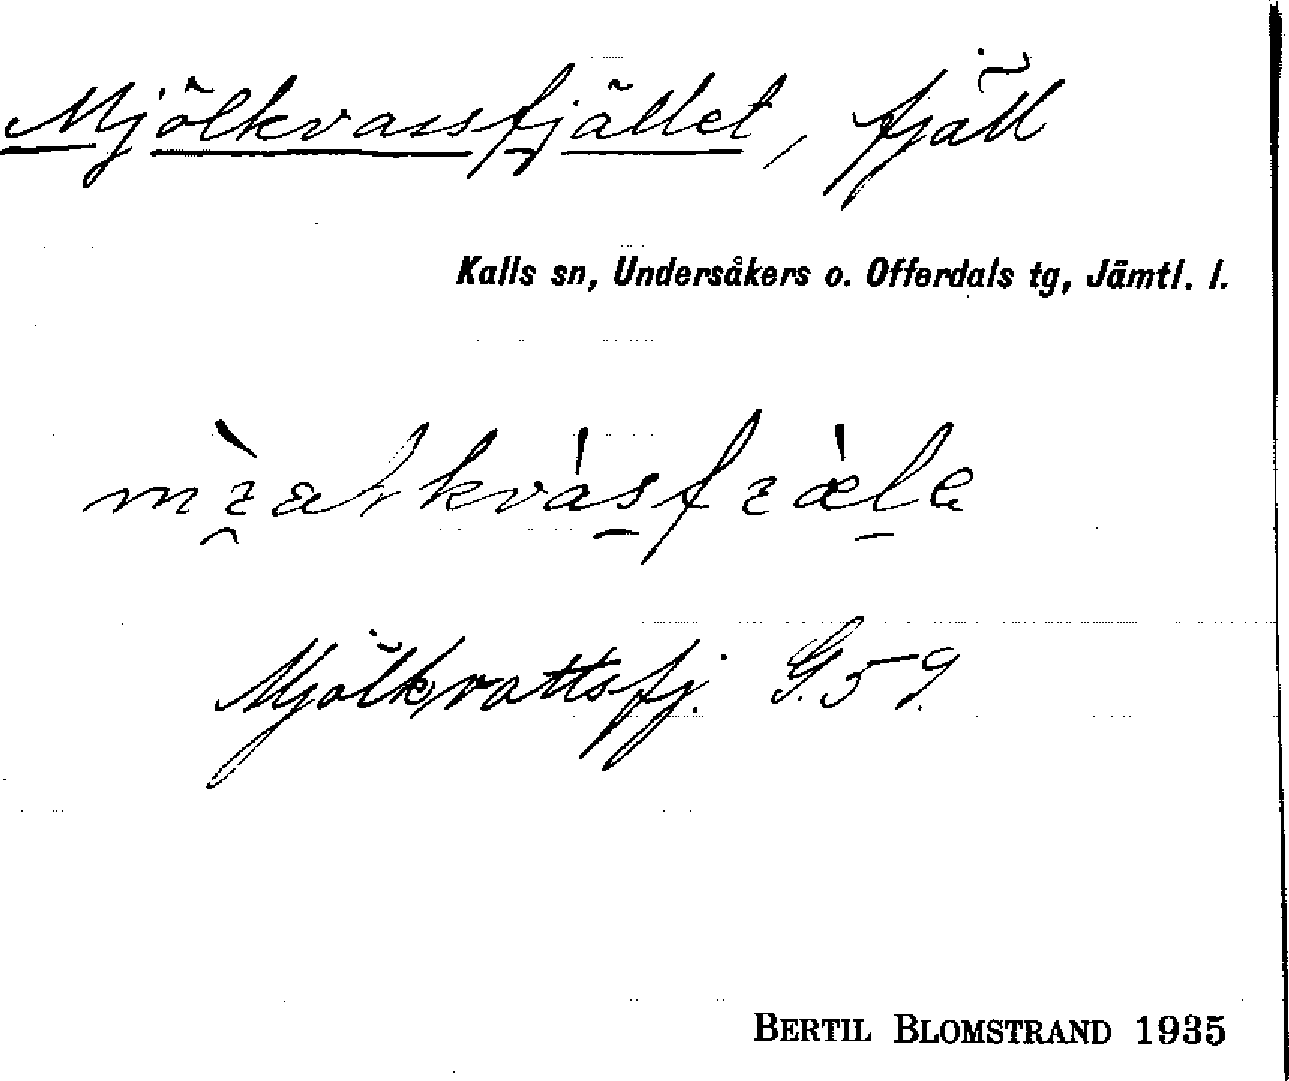 Mjölkvassfjället, fjäll
Kalls sn, Undersåkers o. Offerdals tg, Jämtl. l.
Mjölkvattsfj. G. 59.
BERTIL BLOMSTRAND 1935